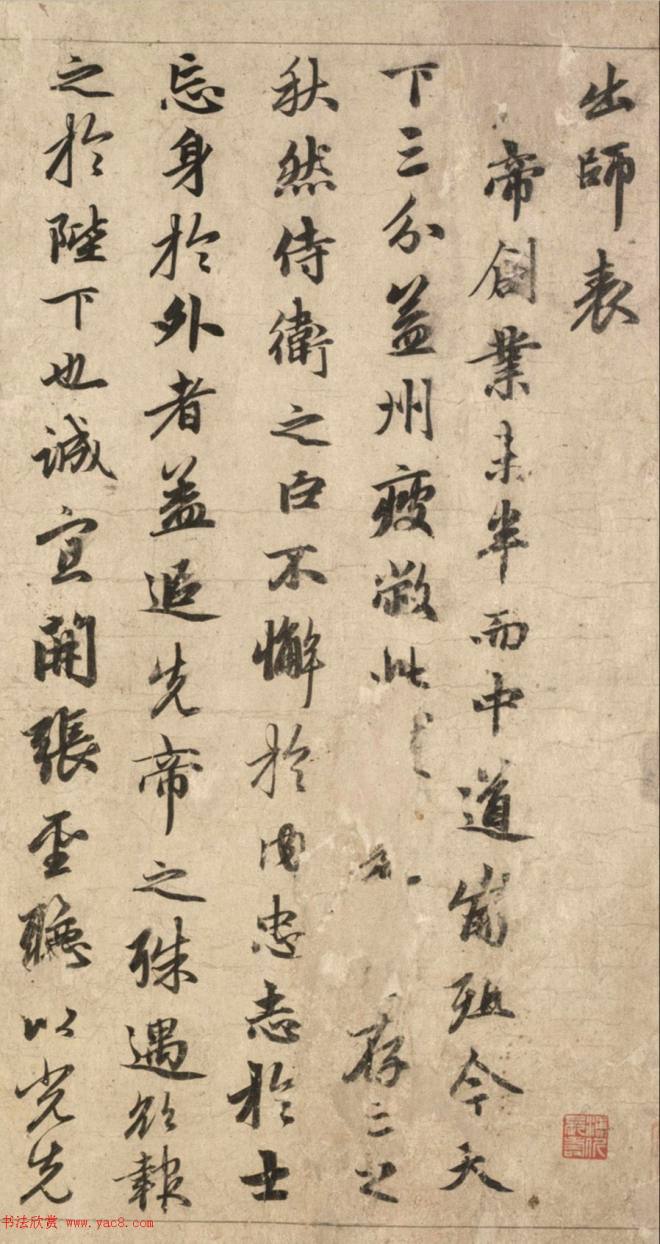 出師表
帝創業未半而中道崩殂今天
下三分益州疲敝此存之
秋然侍衛之臣不懈於内忠志於士
忘身於外者盖追先帝之殊遇欲報
之於陛下也誠宜開張聖聽以光先
书法欣赏 www.yac8.com